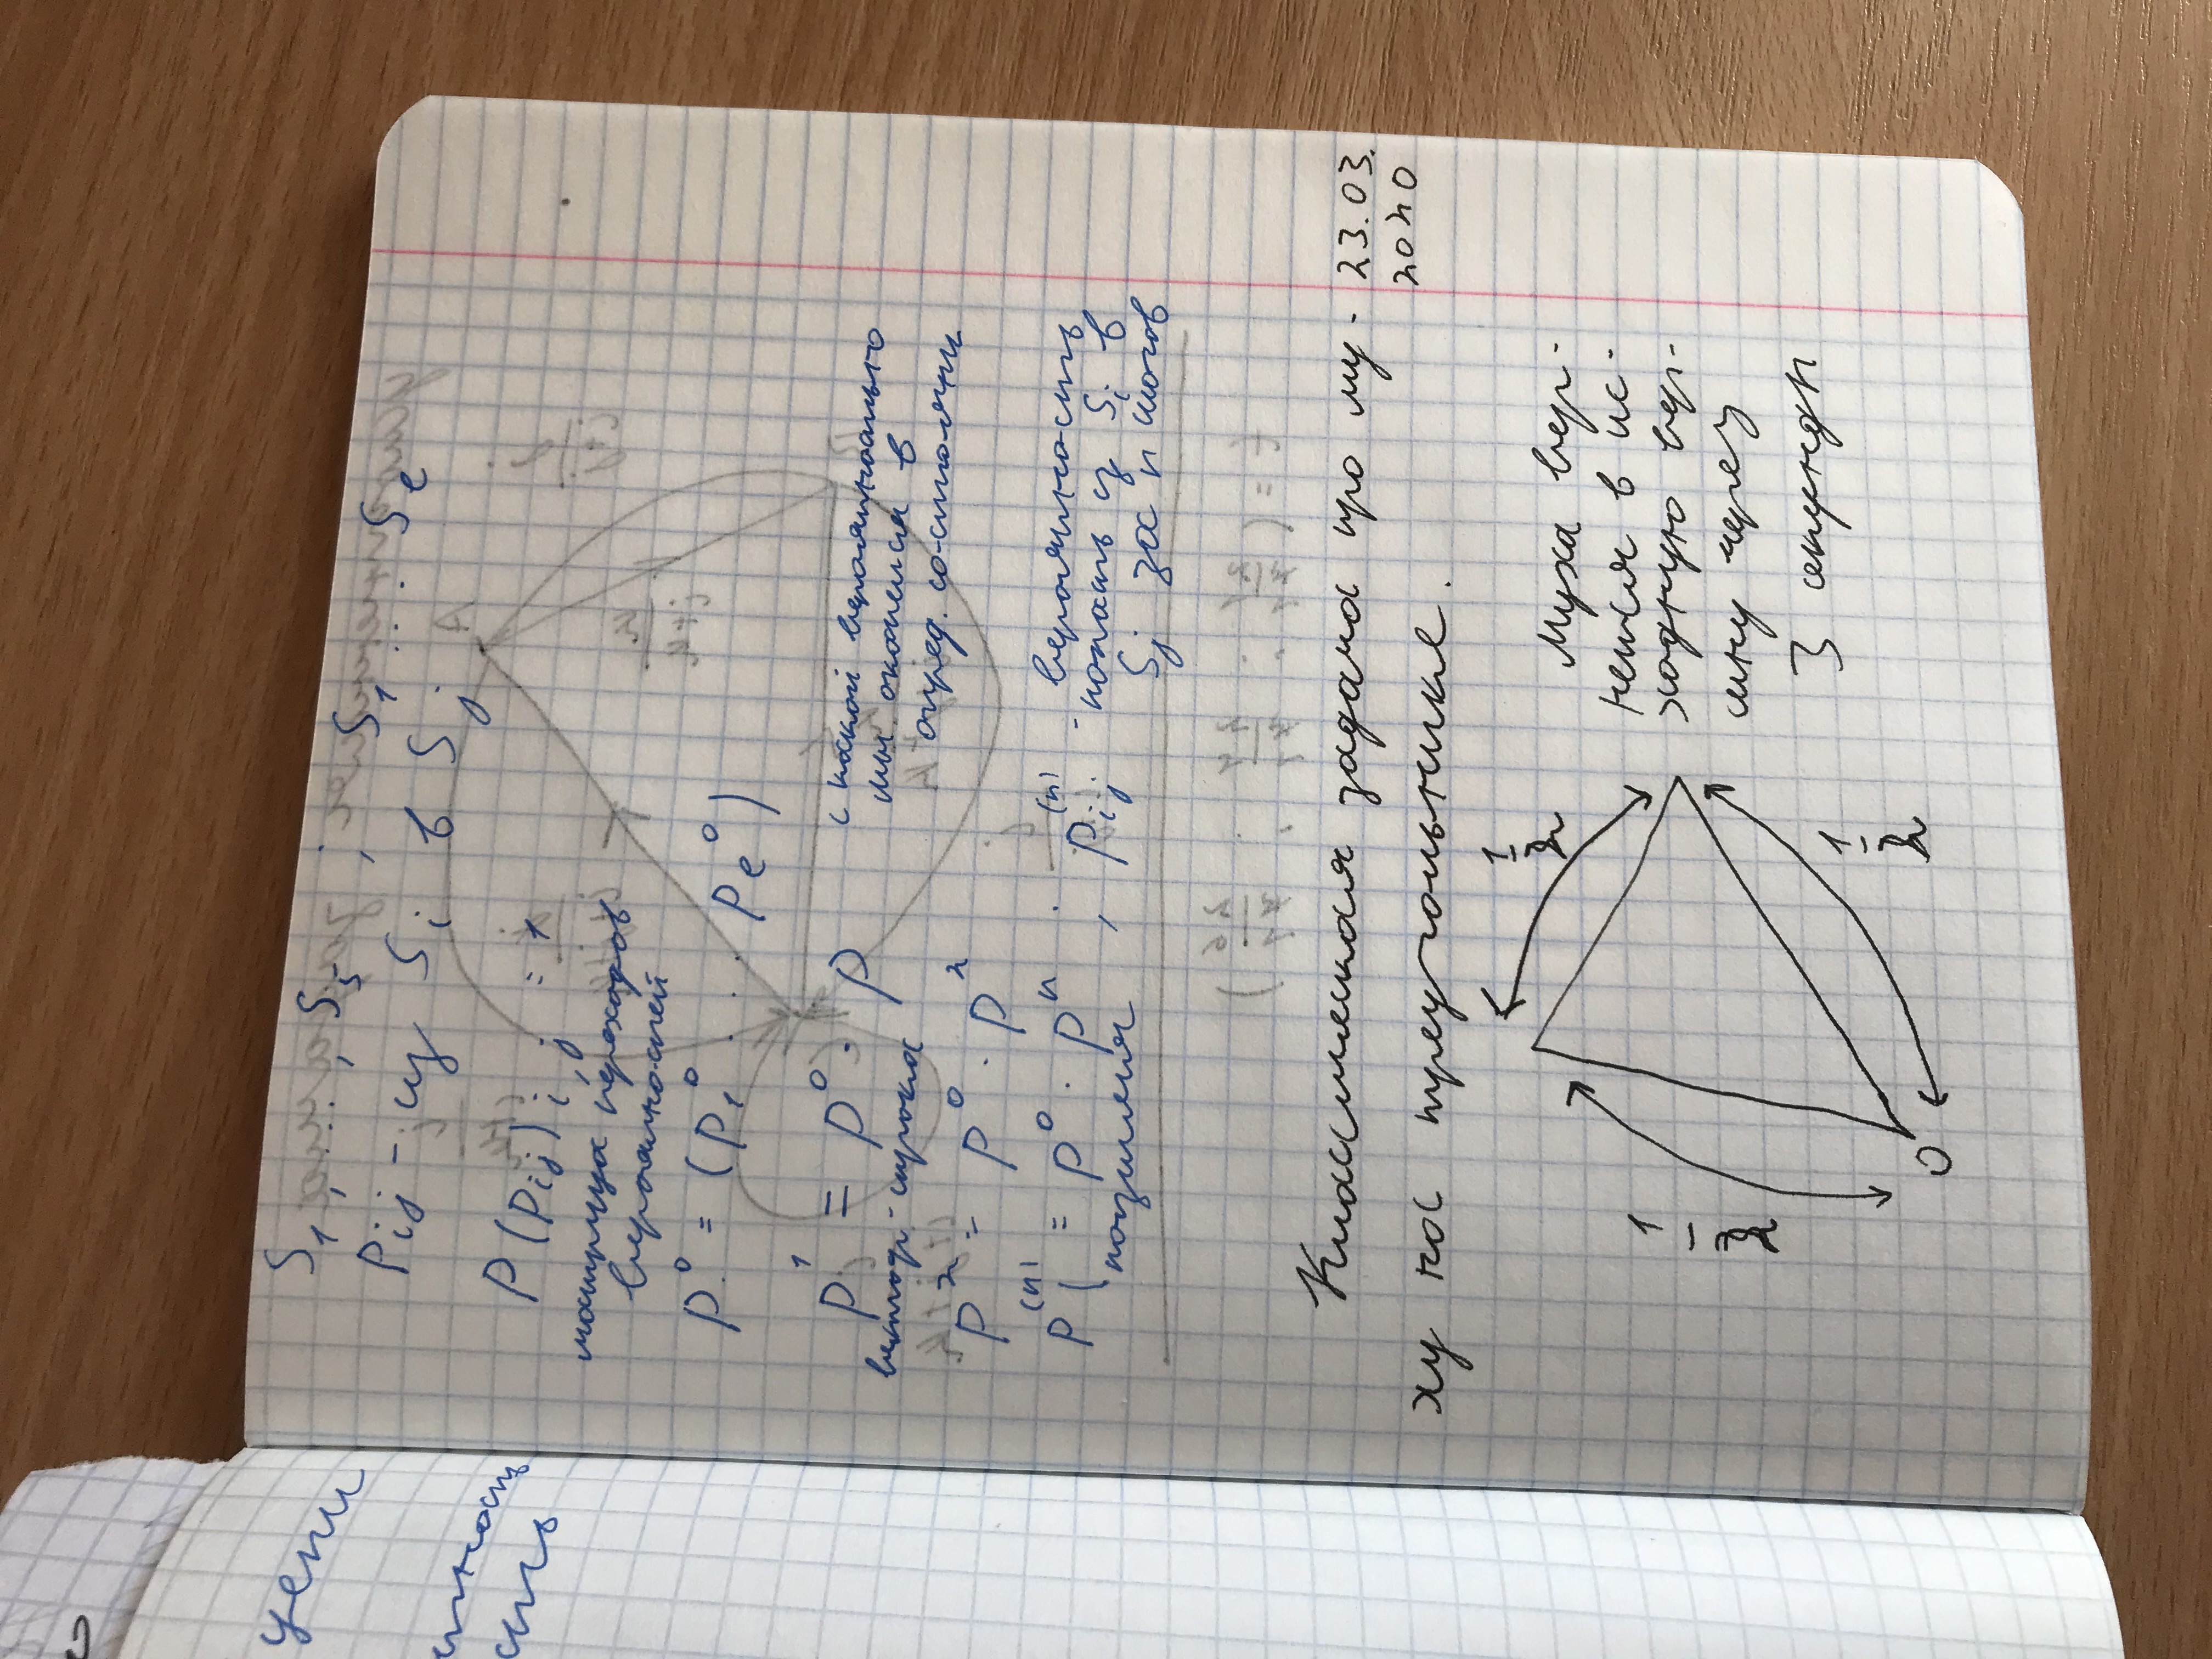 цепи
S₁, ..., S₅ ; S₁ ... Sₑ
Pij - из Si в Sj
P(Pij)i,j = 1
матрица переходов
вероятностей
P⁰ = (P₁⁰ ... Pₑ⁰)
P¹ = P⁰ · P
вектор-строка
с какой вероятностью
мы окажемся в
опред. состоянии
P² = P⁰ · P²
P⁽ⁿ⁾ = P⁰ · Pⁿ , Pij⁽ⁿ⁾ - вероятность
попасть из Si в
Sj за n шагов
Классическая задача про му-
ху на треугольнике.
23.03.
2020
1/2
1/2
1/2
0
Муха вер-
нется в ис-
ходную вер-
шину через
3 секунды